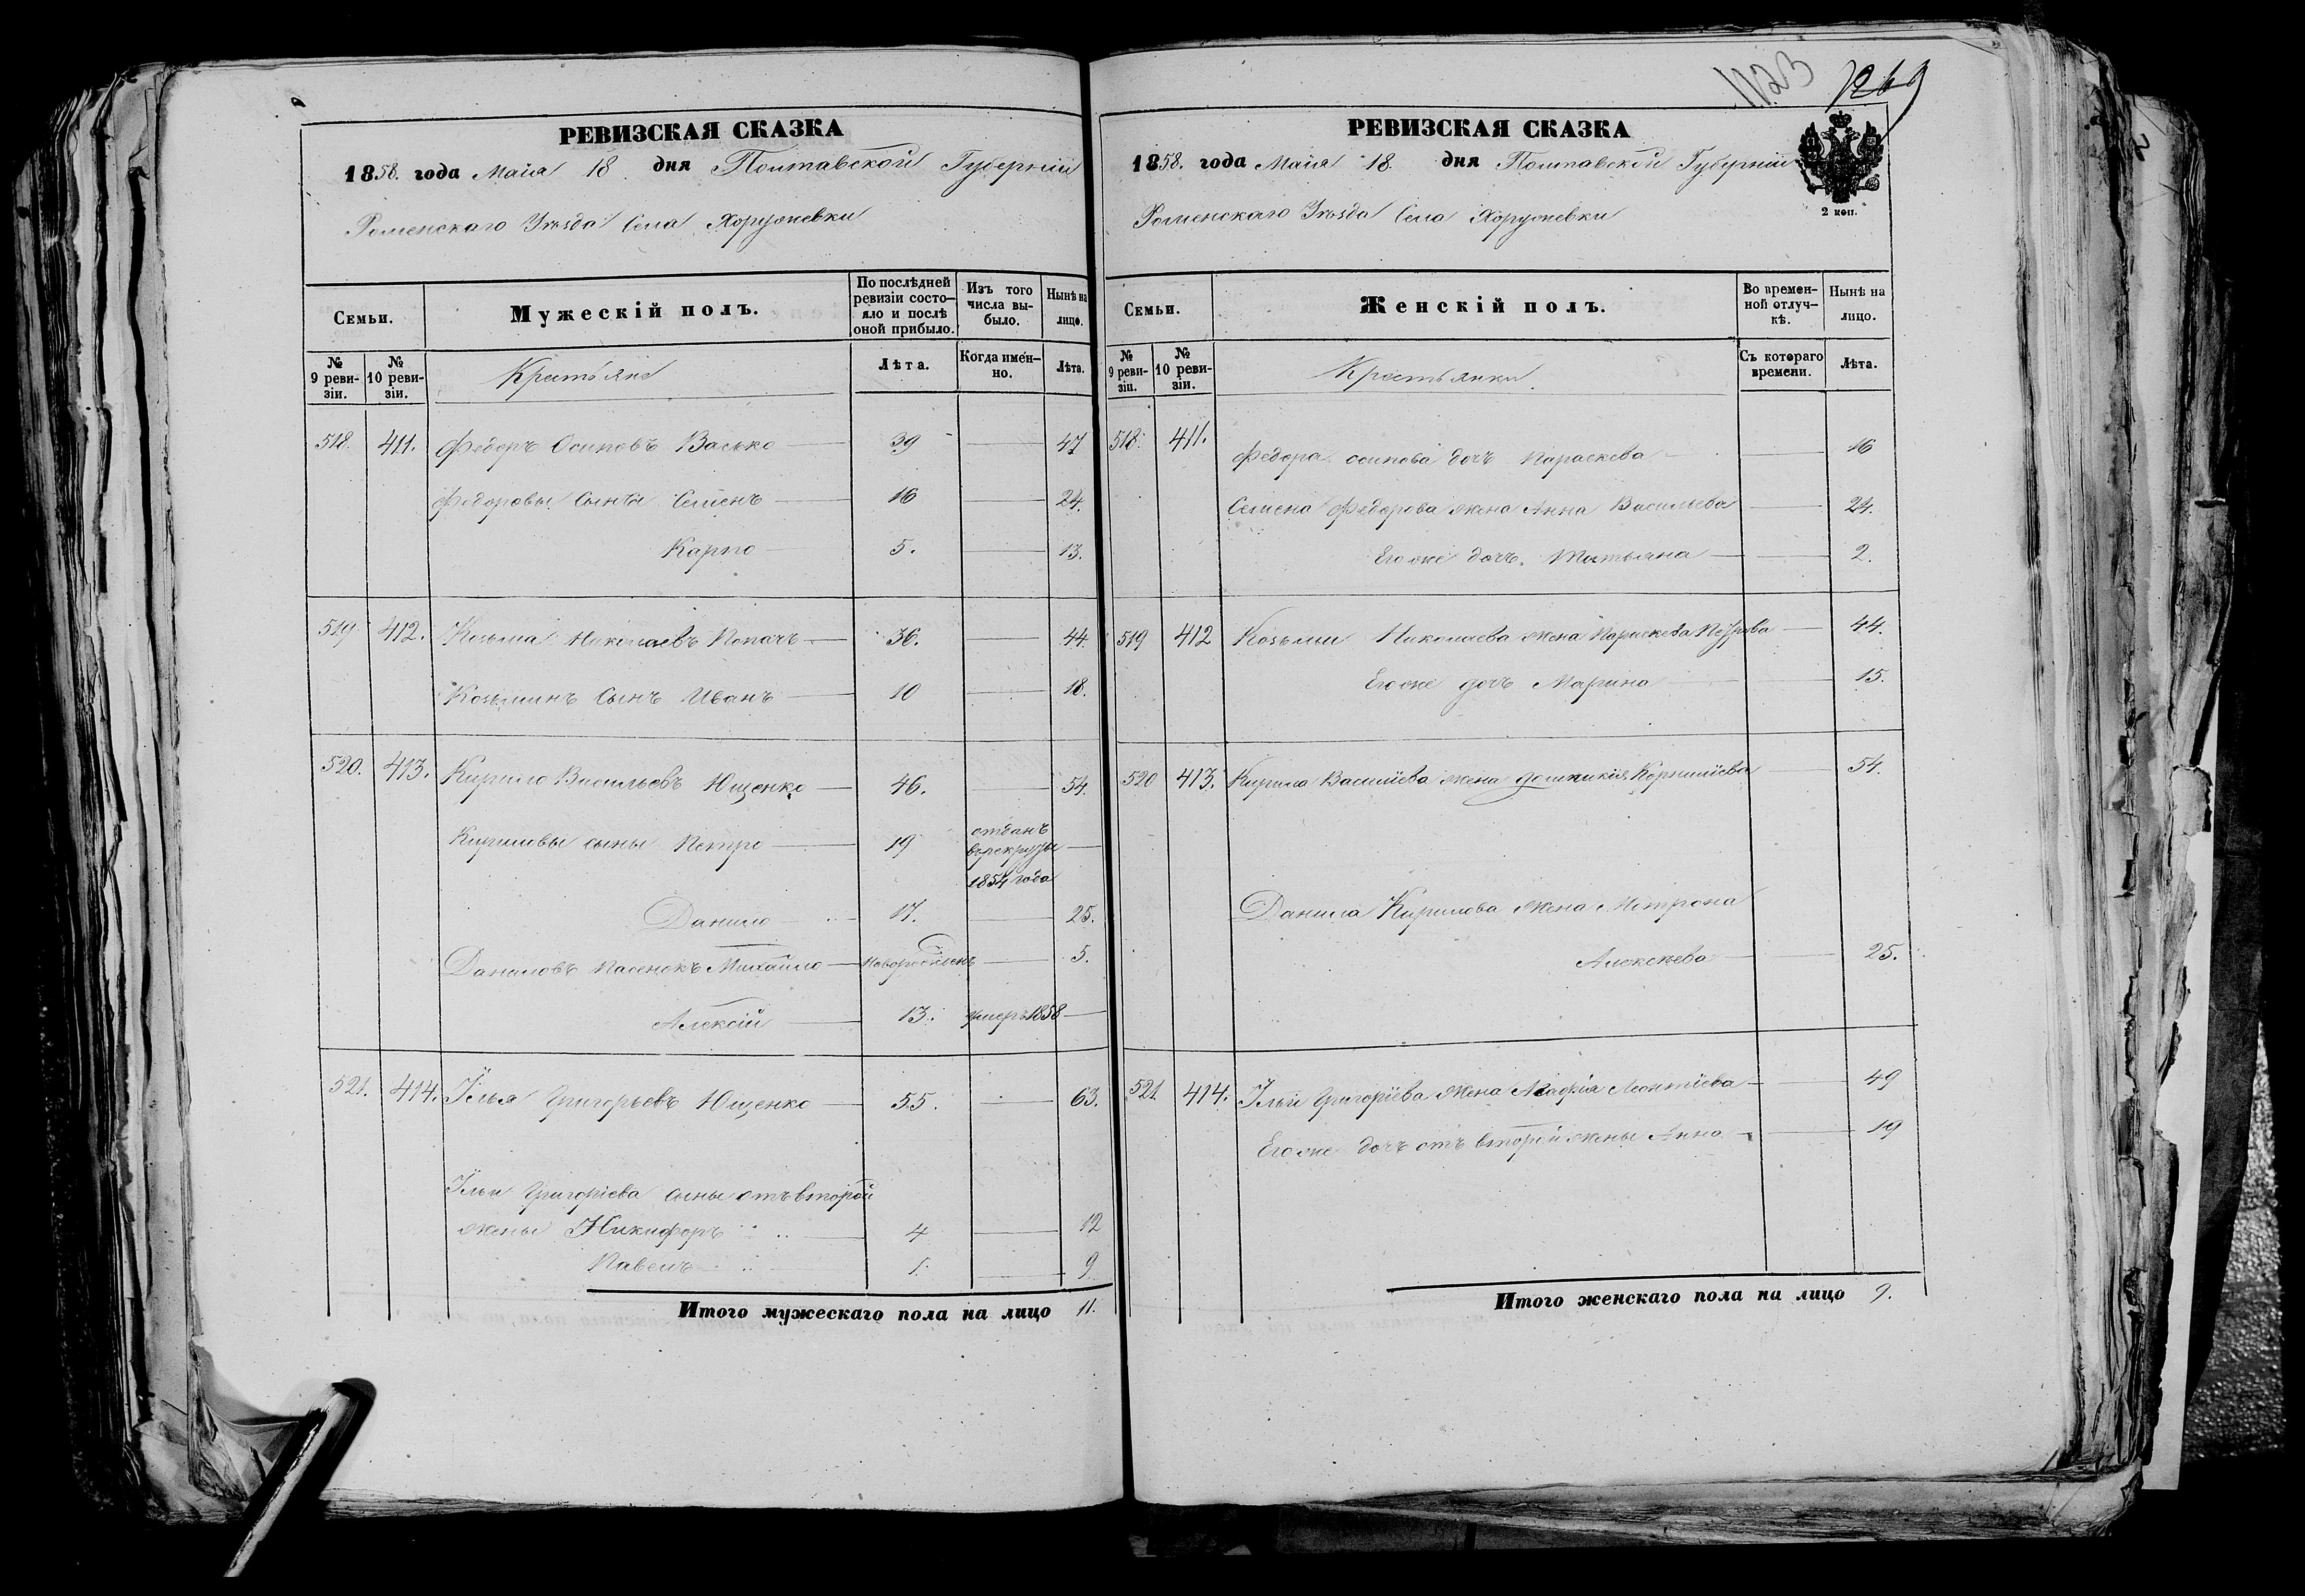 1123 1269
РЕВИЗСКАЯ СКАЗКА
1858. года Майя 18 дня Полтавской Губерніи
Роменскаго Уѣзда Села Хоружевки
Семьи. Мужескій полъ. По послѣдней ревизіи состо-яло и послѣ оной прибыло. Изъ того числа вы-было. Нынѣ на лицо.
№ 9 реви-зіи. № 10 реви-зіи. Крестьяне Лѣта. Когда имен-но. Лѣта.
518. 411. Федоръ Осиповъ Васько 39 47
Федоровы Сыны Семенъ 16 24.
Карпо 5. 13.
519 412. Козьма Николаевъ Копачъ 36. 44.
Козьминъ Сынъ Иванъ 10 18.
520. 413. Кирило Васильевъ Ющенко 46. 54.
Кириловы сыны Петро 19 отданъ
в рекруты
1854 года
Данило 17. 25.
Даниловъ пасенокъ Михайло Новорожденъ 5.
Алексій 13. умеръ 1858
521. 414. Илья Григорьевъ Ющенко 55. 63.
Ильи Григоріева сыны отъ второй
жены Никифоръ 4 12
Павелъ 1. 9
Итого мужескаго пола на лицо 11.
РЕВИЗСКАЯ СКАЗКА
1858. года Майя 18. дня Полтавской Губерніи
Роменскаго Уѣзда Села Хоружевки
2 коп.
Семьи. Женскій полъ. Во времен-ной отлуч-кѣ. Нынѣ на лицо.
№ 9 реви-зіи. № 10 реви-зіи. Крестьянки. Съ котораго времени. Лѣта.
518. 411. Федора осипова дочь Параскева 16
Семена Федорова жена Анна Васильева 24.
Его же дочь Татьяна 2.
519 412 Козьмы Николаева жена Параскева Петрова 44.
Его же дочь Марина 15.
520 413. Кирила Василіева жена Домникія Корниліева 54.
Данила Кирилова жена Мотрона
Алексѣева 25.
521 414. Ильи Григоріева жена Агафія Леонтіева 49
Его же дочь отъ второй жены Анна 19
Итого женскаго пола на лицо 9.